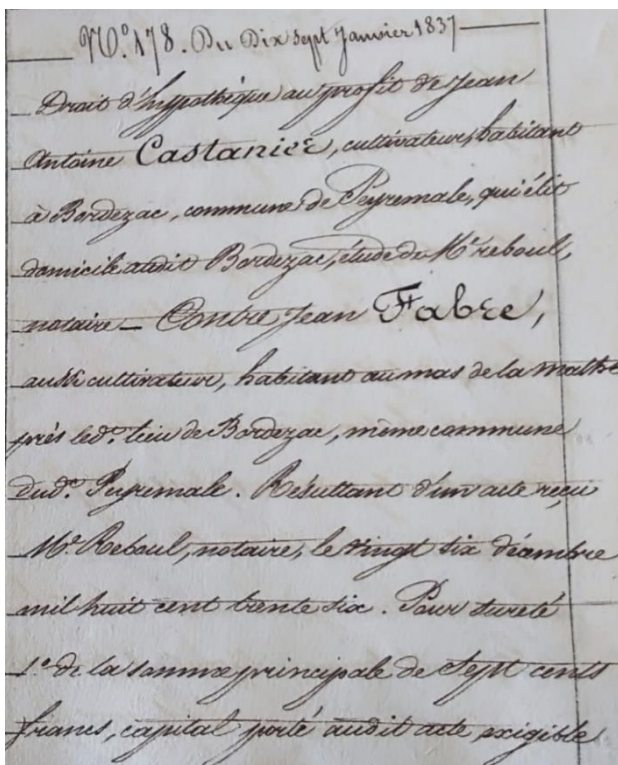 N.º 178. Du Dix Sept Janvier 1837
Droit d'hypothèque au profit de Jean
Antoine Castanier, cultivateur, habitant
à Bordezac, commune de Peyremale, qui élit
domicile audit Bordezac, étude de Mᵉ reboul,
notaire _ Contre Jean Fabre,
aussi cultivateur, habitant au mas de la mathe
près led.ᵗ lieu de Bordezac, même commune
dud.ᵗ Peyremale. Résultant d'un acte reçu
Mᵉ Reboul, notaire, le vingt six décembre
mil huit cent trente six. Pour sureté
1.º de la somme principale de Sept cents
francs, capital porté audit acte, exigible